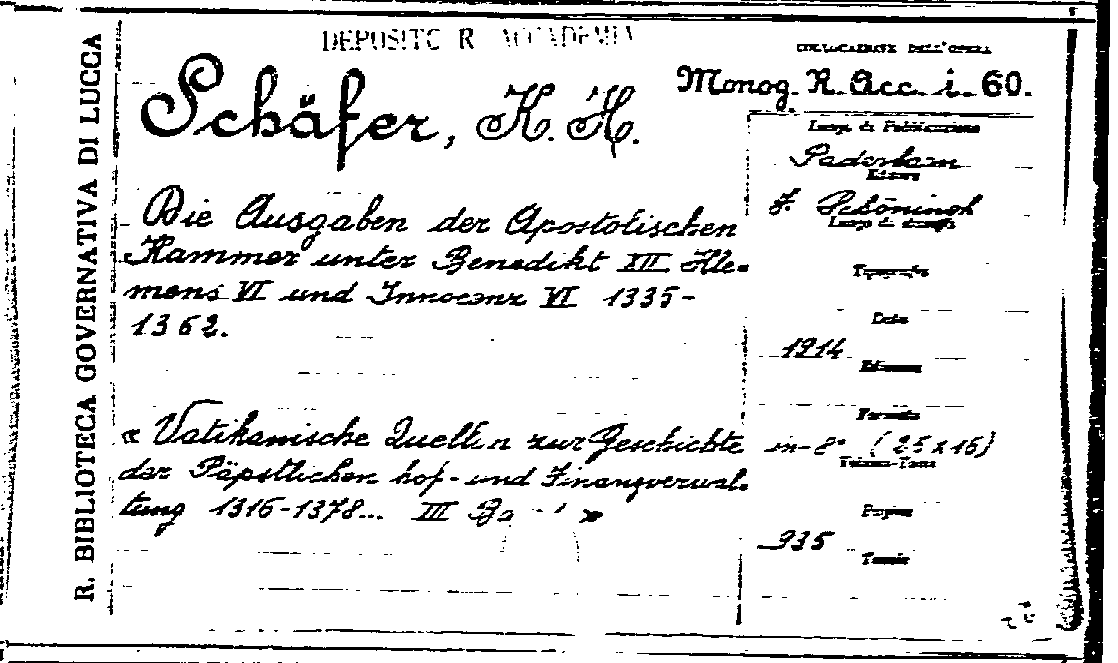 R. BIBLIOTECA GOVERNATIVA DI LUCCA
DEPOSITO R. ACCADEMIA
COLLOCAZIONE DELL'OPERA
Monog. R. Acc. i. 60.
Schäfer, K. H.
Die Ausgaben der Apostolischen
Kammer unter Benedikt XII Kle-
mens VI und Innocenz VI 1335-
1362.
« Vatikanische Quellen zur Geschichte
der Päpstlichen hof- und Finanzverwal-
tung 1316-1378... III »
Luogo di Pubblicazione
Paderborn
Editore
F. Schöningh
Luogo di stampa
Tipografo
Data
1914
Edizione
Formato
in-8° (25x16)
Pagine
935
Tavole